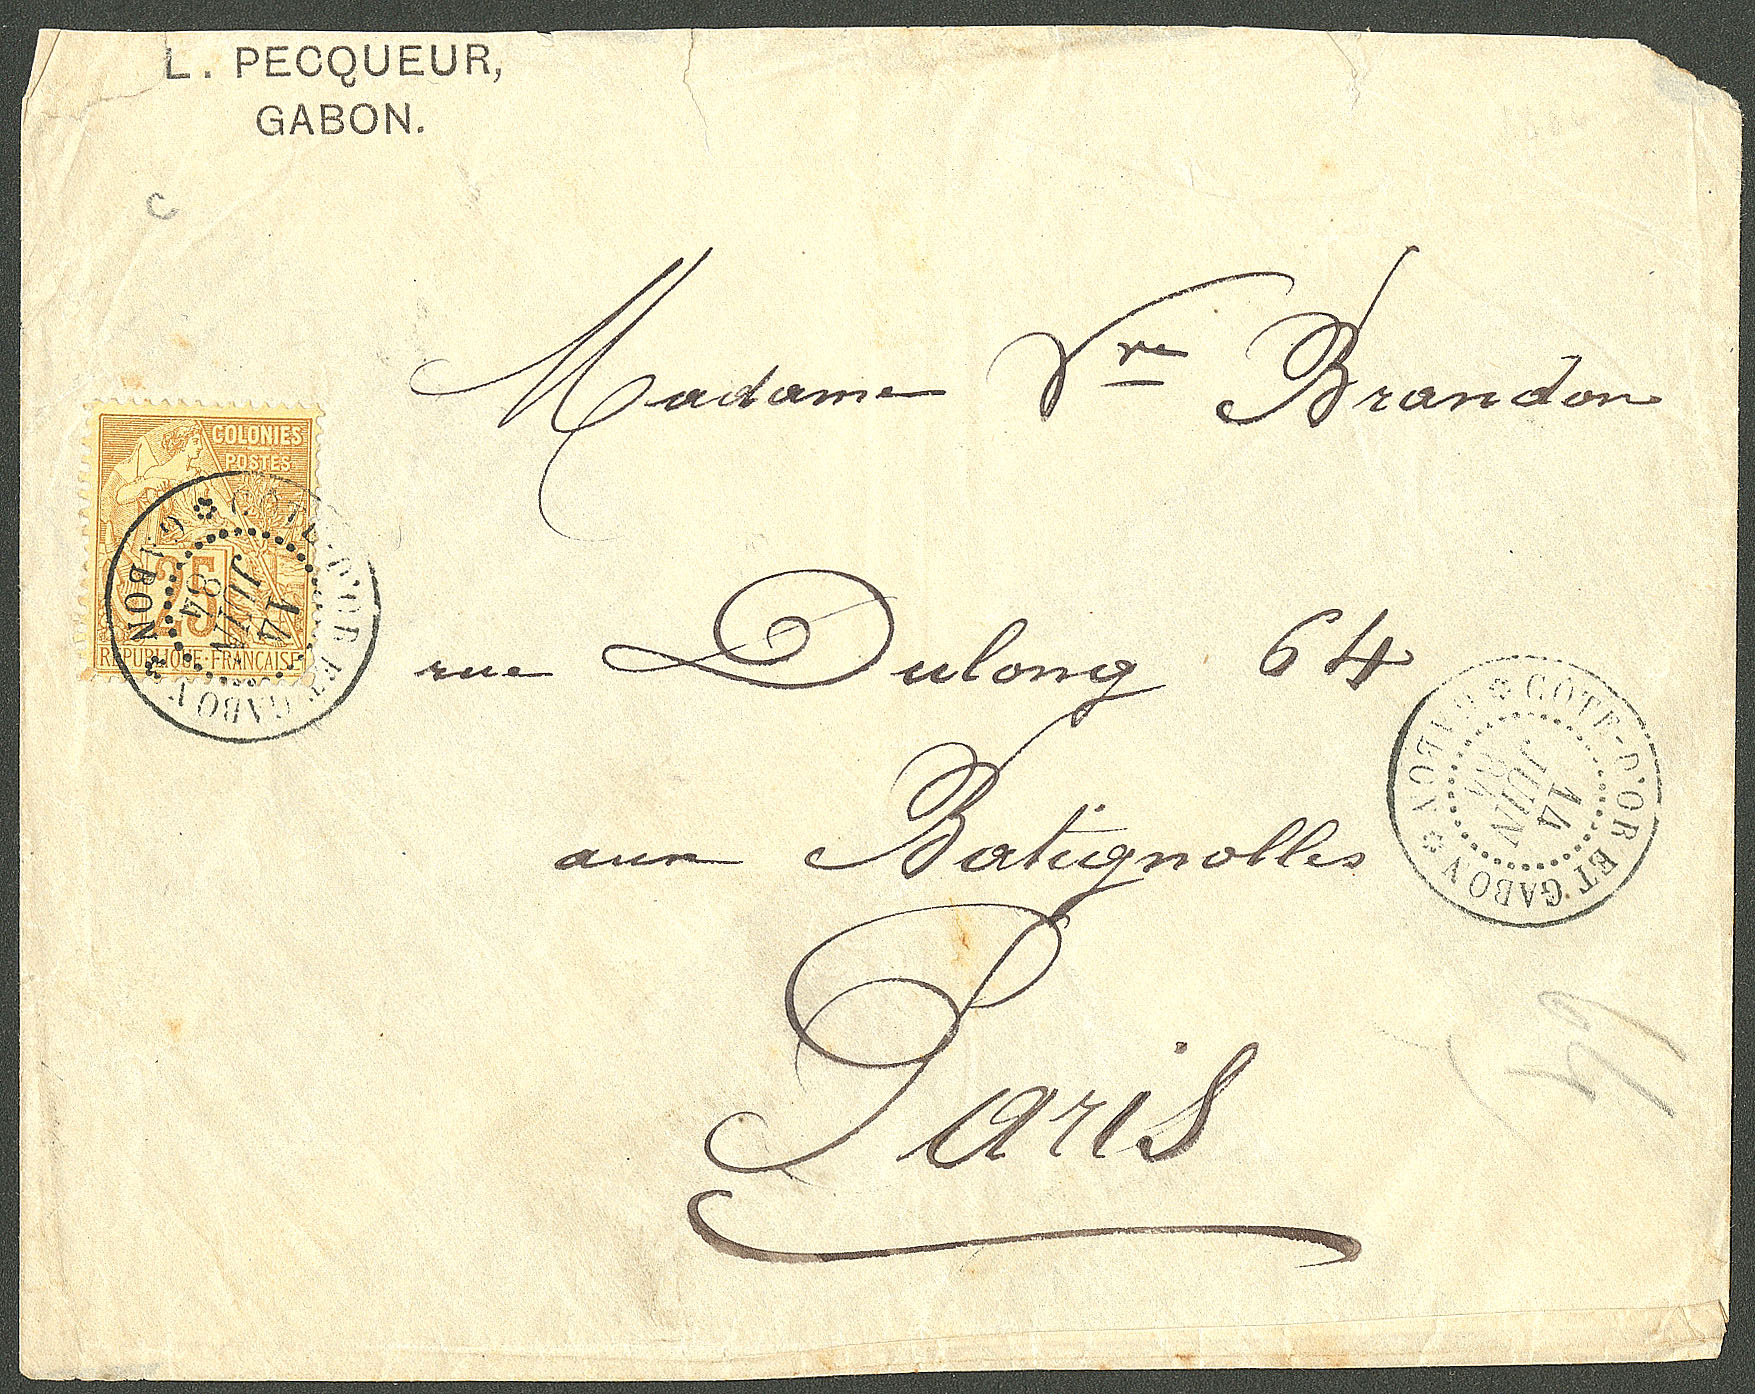 L. PECQUEUR,
GABON.
COLONIES
POSTES
25
REPUBLIQUE FRANÇAISE
COTE-D'OR ET GABON
GABON
14
JUIN
84
Madame Vve Brandon
rue Dulong 64
aux Batignolles
Paris
COTE-D'OR ET GABON
GABON
14
JUIN
84